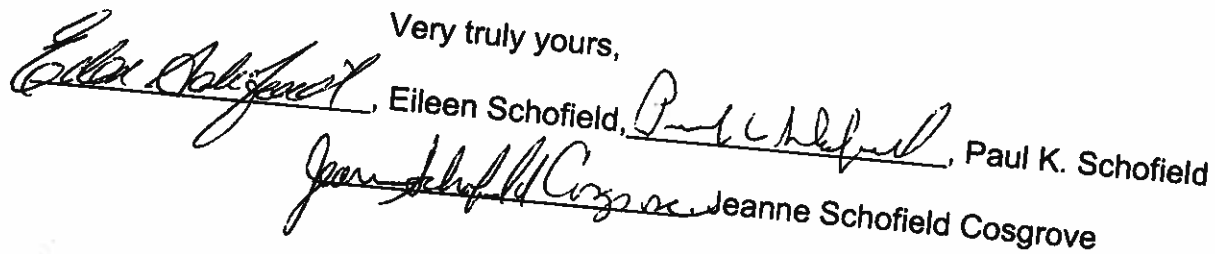 Very truly yours,
Eileen Schofield, Eileen Schofield, Paul K Schofield, Paul K. Schofield
Jeanne Schofield Cosgrove, Jeanne Schofield Cosgrove